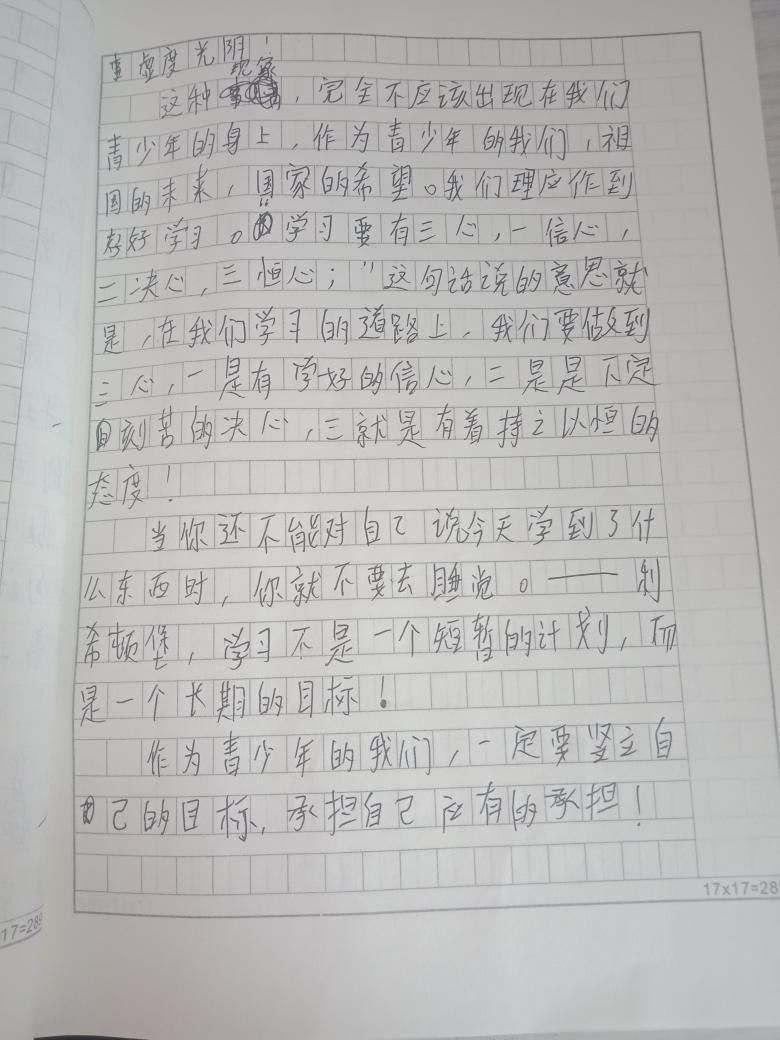 虚度光阴！
现象
这种，完全不应该出现在我们
青少年的身上，作为青少年的我们，祖
国的未来，国家的希望。我们理应作到
好好学习。“学习要有三心，一信心，
二决心，三恒心；”这句话说的意思就
是，在我们学习的道路上，我们要做到
三心，一是有学好的信心，二是是下定
刻苦的决心，三就是有着持之以恒的
态度！
当你还不能对自己说今天学到了什
么东西时，你就不要去睡觉。——利
希顿堡，学习不是一个短暂的计划，而
是一个长期的目标！
作为青少年的我们，一定要竖立自
己的目标，承担自己应有的承担！
17x17=28
17=289